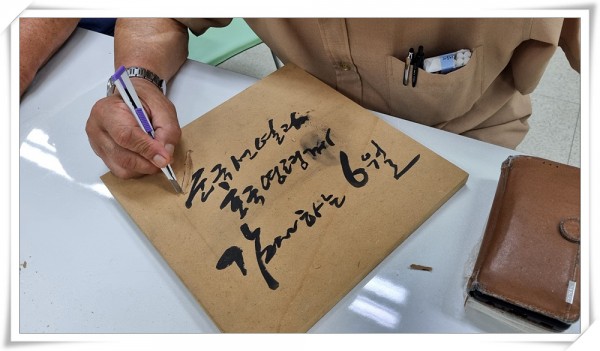 순국선열과
호국영령께
감사하는 6월